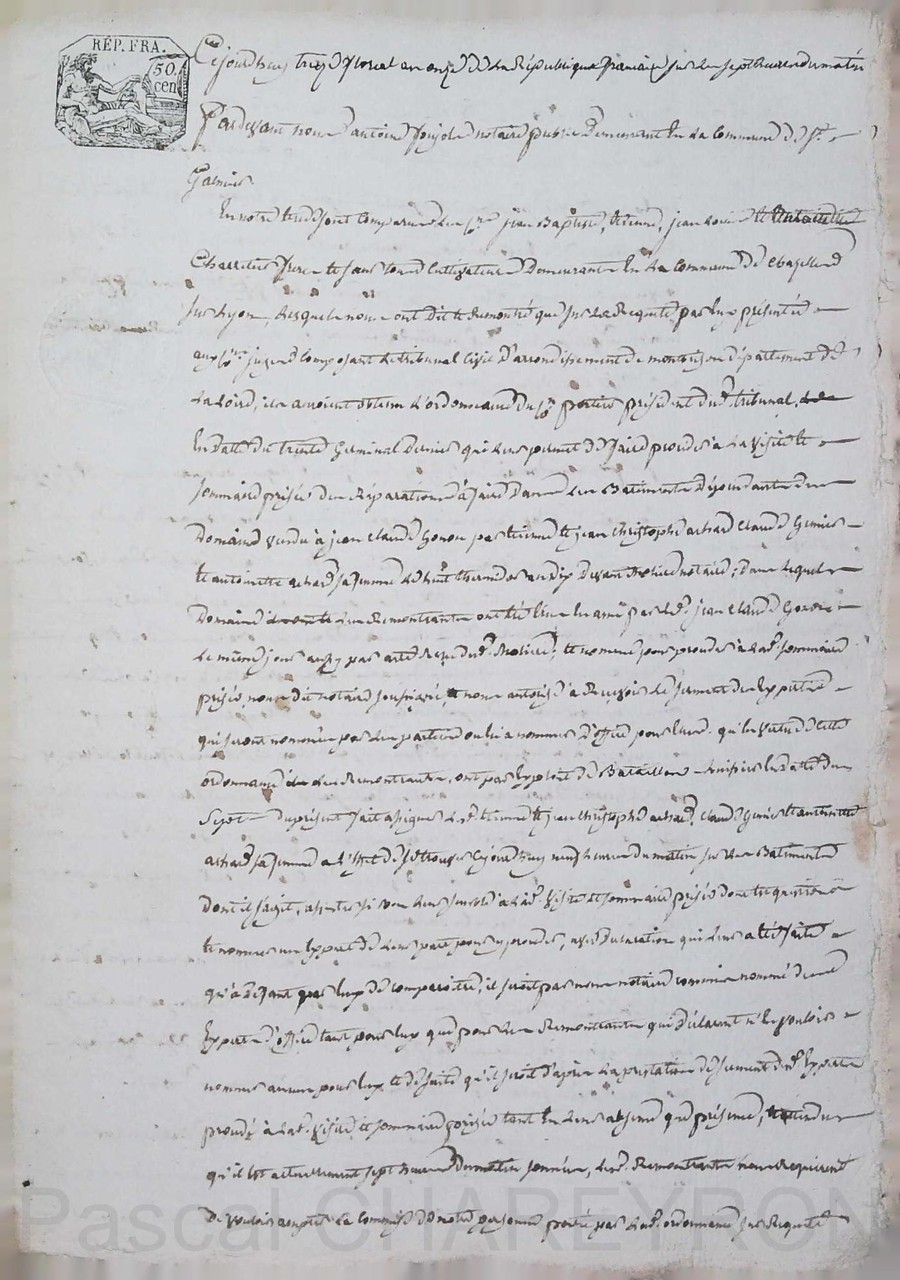 RÉP. FRA.
50
cen
Cejourdhuy treize floreal an onze de la République française sur les sept heures du matin
Pardevant nous antoine notaire public demeurant en la Commune de St
Galmier
En notre etude sont Comparus les Cns jean Baptiste, étienne, jean Louis
frere et tous Cultivateurs Demeurants En la Commune de Chazelles
sur Lyon, lesquels nous ont Dit et Remontré que sur la Requete par eux présentée
aux Cns juges Composant le tribunal Civil D'arrondissement de montbrison département de
la Loire, ils avoient obtenu L'ordonnance du Cn président dud. tribunal,
En datte du trente Germinal dernier qui leur permet de faire proceder à la visite et
sommaire prisée des Réparations à faire dans les Batiments dépendants du
Domaine vendu à jean Claude Gonon par étienne et jean Christophe achard Claude
et antoinette achard sa femme le huit thermidor an dix devant notaire; dans lequel
Domaine les Remontrants ont été par led. jean Claude Gonon
le même jour aussy par acte Reçu dud. ; et nommé pour proceder à lad. sommaire
prisée, nous dit notaire soussigné, et nous autorise à Recevoir le serment des Experts
qui seront nommés par les parties ou en a nommer d'office pour elles. qu'en vertu d'icelle
ordonnance les Remontrants, ont par Exploit de Bataillon huissier en datte du
Sept du présent fait assigner lesd. étienne et jean Christophe achard, Claude et antoinette
achard sa femme a L'effet de se trouver Cejourdhuy neuf heures du matin sur les Batiments
dont il s'agit, assister si bon leur semble à lad. visite et sommaire prisée dont est question
et nommer un Expert de leur part pour y proceder, avec déclaration qui leur a été faite
qu'à deffaut par eux de comparoitre, il seroit par nous notaire commis nommé
Experts d'office tant pour eux que pour les Remontrants qui déclarent n'en vouloir
nommer aucun pour eux et de suite qu'il seroit d'après la prestation de serment desd. Experts
procédé à lad. visite et sommaire prisée tant en leur absence que présence, attendu
qu'il est actuellement sept heures du matin sonnées, lesd. Remontrants nous Requierent
de vouloir accepter la commission notre personne portée par lad. ordonnance sur Requete
Pascal CHAREYRON